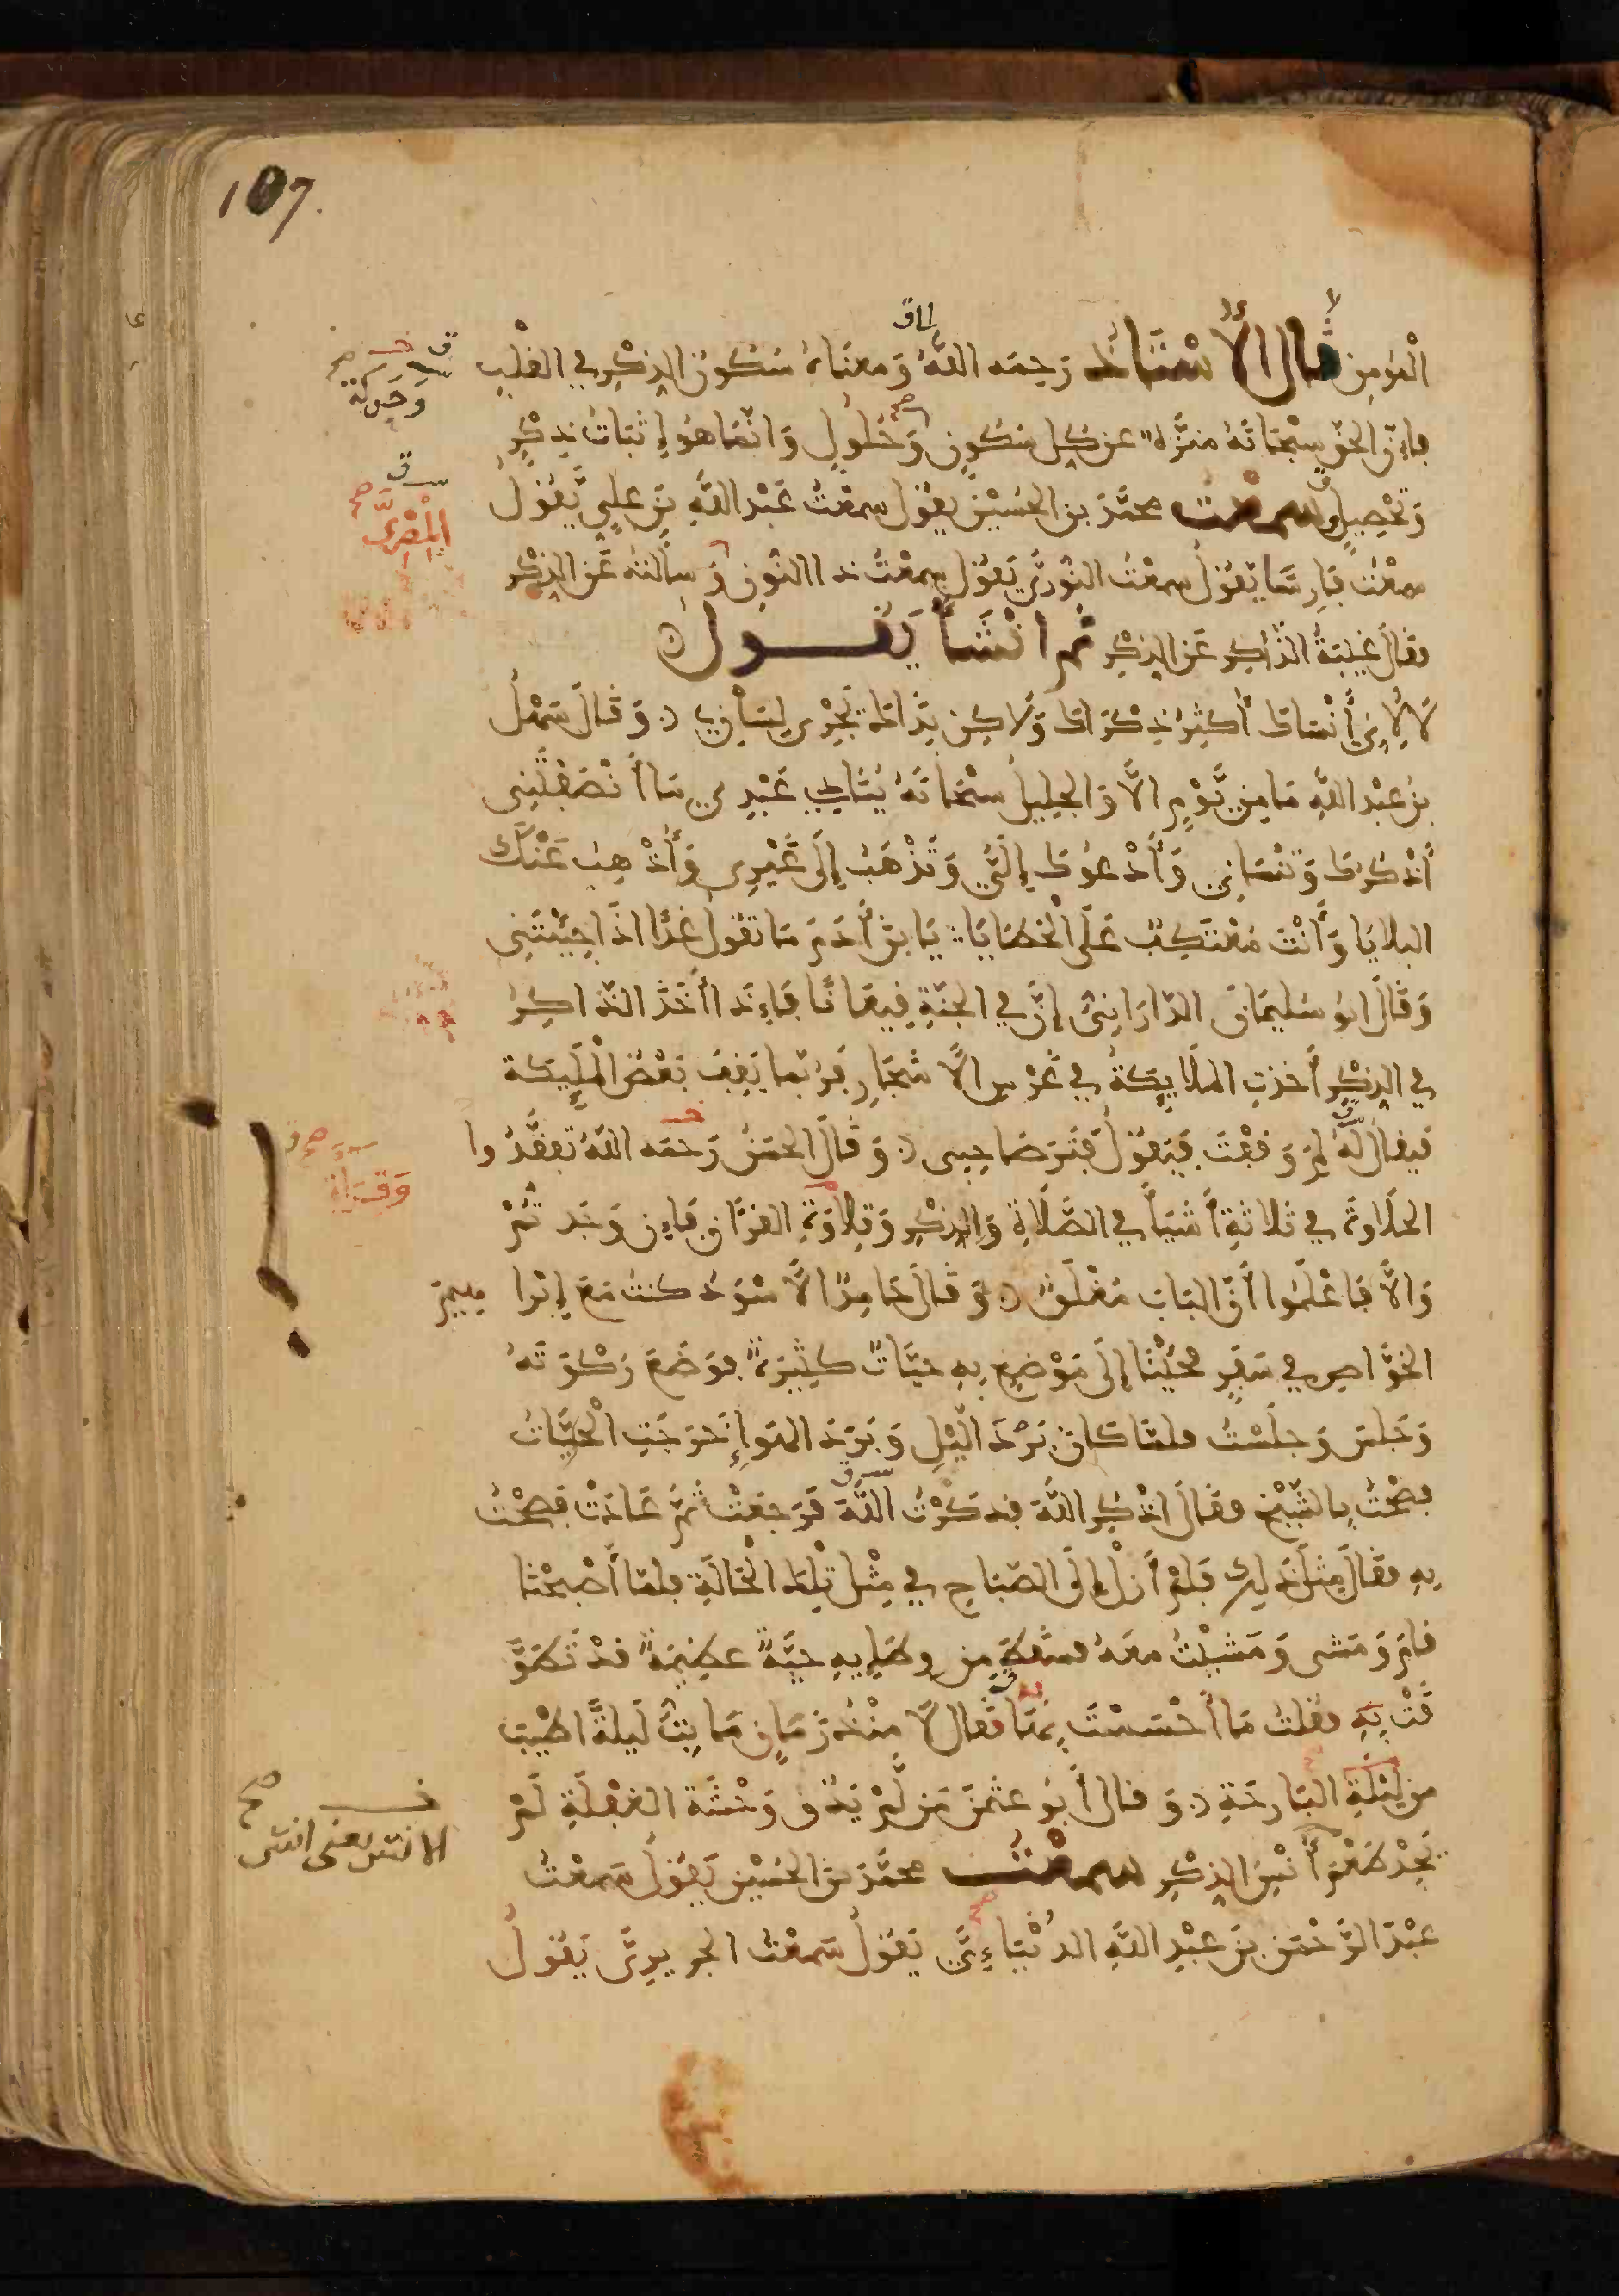 107.
المؤمن قال الأستاذ رحمه الله ومعناه سكون الذكر في القلب
فإن الحق سبحانه منزه عن كل سكون وحلول وانما هو إثبات ذكر
وتحصيل سمعت محمد بن الحسين يقول سمعت عبد الله بن علي يقول
سمعت فارسا يقول سمعت الثوري يقول سمعت ذا النون وسألته عن الذكر
فقال غيبة الذاكر عن الذكر ثم انشأ يقول
لا لأني أنساك أكثر ذكراك ولاكن بذاك تجرى لساني وقال سهل
بن عبد الله ما من يوم الا والجليل سبحانه ينادي عبدي ما أنصفتني
أذكرك وتنساني وأدعوك إلي وتذهب إلى غيري وأذهب عنك
البلايا وأنت معتكف على الخطايا يا بن آدم ما تقول غدا اذا جئتني
وقال ابو سليمان الداراني إن في الجنة قيعانا فإذا أخذ الذاكر
في الذكر أخذت الملايكة في غرس الأشجار فربما يقف بعض الملئكة
فيقال له لم وقفت فيقول فتر صاحبي وقال الحسن رحمه الله تفقدوا
الحلاوة في ثلاثة أشيا في الصلاة والذكر وتلاوة القرآن فإن وجدتم
والا فاعلموا أن الباب مغلق وقال حامد الاسود كنت مع إبرا هيم
الخواص في سفر فجئنا إلى موضع به حيات كثيرة فوضع ركوته
وجلس وجلست فلما كان برد اليل وبرد الهواء خرجت الحيات
فصحت بالشيخ فقال اذكر الله فذكرت الله فرجعت ثم عادت فصحت
به فقال مثل ذلك فلم أزل إلى الصباح في مثل تلك الحالة فلما أصبحنا
قام ومشى ومشيت معه فسقط من وطايه حية عظيمة قد تطو
قت به فقلت ما أحسست بها فقال لا منذ زمان ما بت ليلة اطيب
من ليلة البارحة وقال أبو عثمن من لم يذق وحشة الغفلة لم
يجد طعم أنس الذكر سمعت محمد بن الحسين يقول سمعت
عبد الرحمن بن عبد الله الدبياءي يقول سمعت الجريري يقول
وحركة
المصري
وقراءة